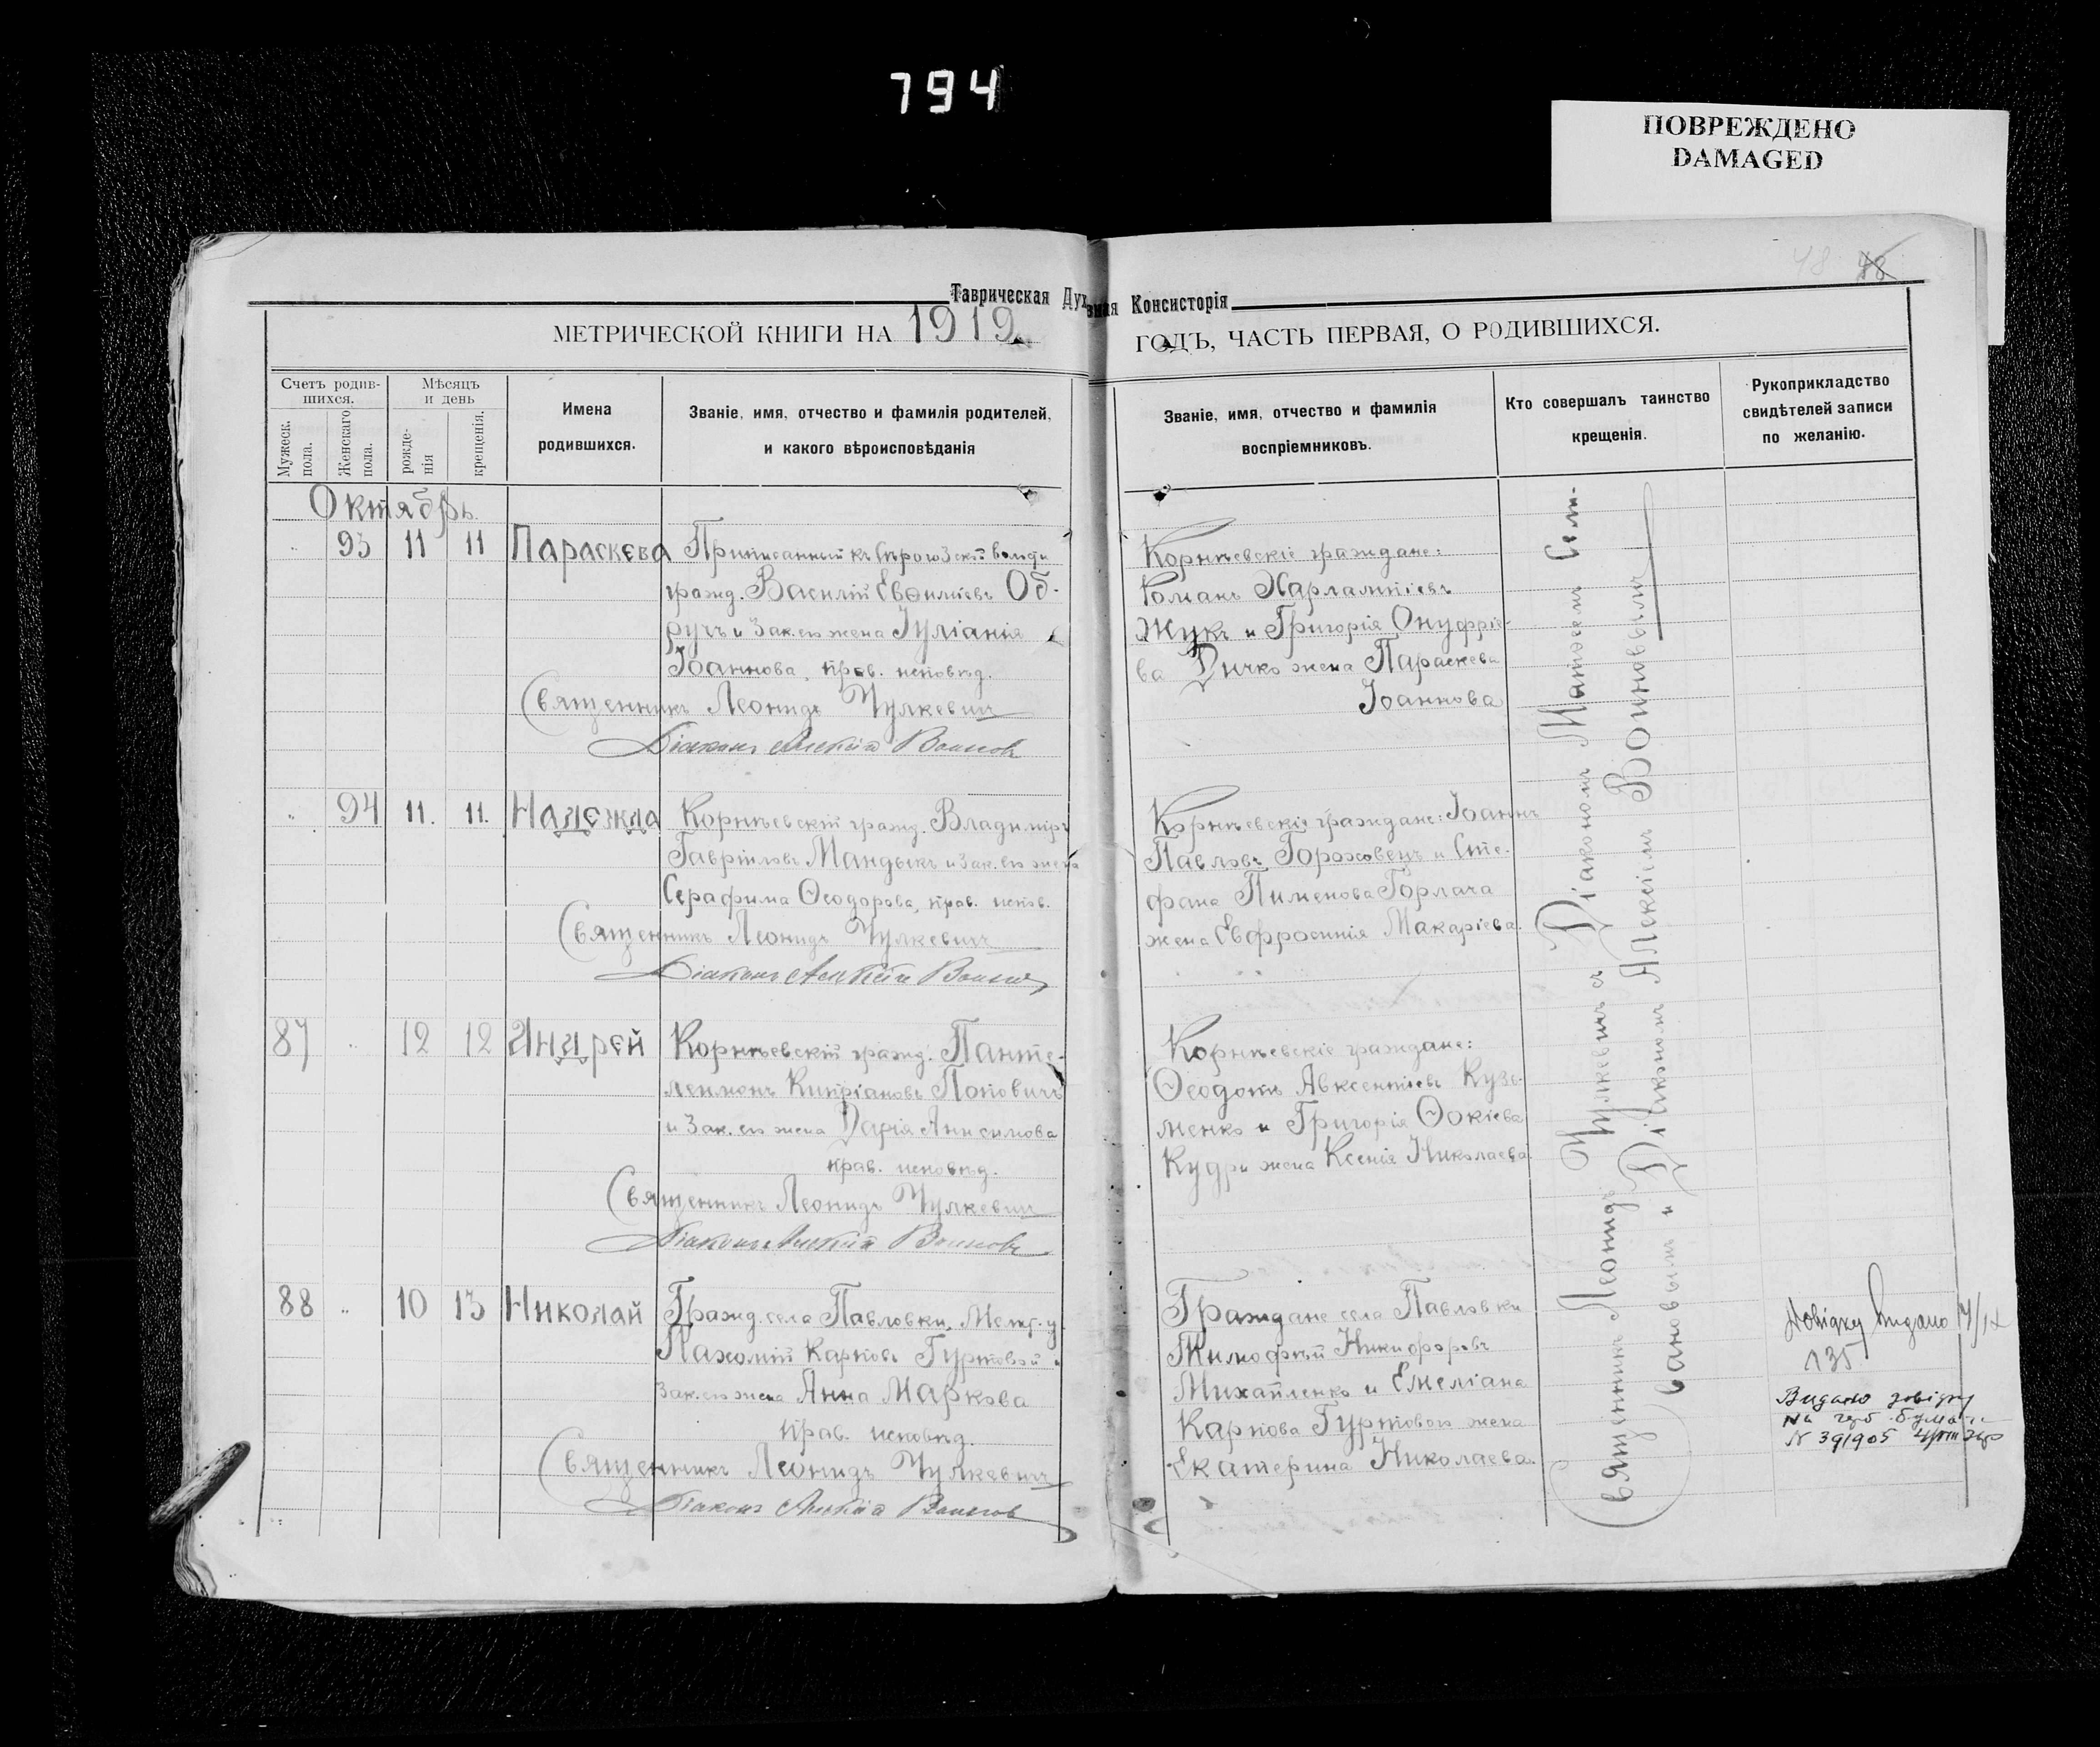 794
ПОВРЕЖДЕНО
DAMAGED
48 48
Таврическая Духовная Консисторія
МЕТРИЧЕСКОЙ КНИГИ НА 1919 ГОДЪ, ЧАСТЬ ПЕРВАЯ, О РОДИВШИХСЯ.
Счетъ родив-
шихся.
Мужеск.
пола.
Женскаго
пола.
Мѣсяцъ
и день
рожде-
нія
крещенія.
Имена
родившихся.
Званіе, имя, отчество и фамилія родителей,
и какого вѣроисповѣданія
Званіе, имя, отчество и фамилія
воспріемниковъ.
Кто совершалъ таинство
крещенія.
Рукоприкладство
свидѣтелей записи
по желанію.
Октябрь
93 11 11 Параскева
Приписанный къ Сѣрогозской
гражд. Василій Евѳиміевъ Об-
ручъ и зак. его жена Іуліанія
Іоаннова, прав. исповѣд.
Священникъ Леонидъ Чулкевич
Діаконъ Алексій Воинов
Корнѣевскіе граждане:
Романъ Харлампіевъ
Жукъ и Григорія Онуфріе-
ва Дичко жена Параскева
Іоаннова
94 11. 11. Надежда
Корнѣевскій гражд. Владиміръ
Гавріиловъ Мандыкъ и зак. его жена
Серафима Ѳеодорова, прав. испов.
Священникъ Леонидъ Чулкевичъ
Діаконъ Алексій Воинов
Корнѣевскіе граждане: Іоаннъ
Павловъ Гороховецъ и Сте-
фана Пименова Горлача
жена Евфросинія Макаріева.
87 12 12 Андрей
Корнѣевскій гражд. Панте-
леимонъ Кипріановъ Поповичъ
и зак. его жена Дарія Анисимова
прав. исповѣд.
Священникъ Леонидъ Чулкевич
Діаконъ Алексій Воиновъ
Корнѣевскіе граждане:
Ѳеодотъ Авксентіевъ Кузь-
менко и Григорія Ѳокіева
Кудри жена Ксенія Николаева.
88 10 13 Николай
Гражд. села Павловки, Мелит. у.
Пахомій Карповъ Гуртовой и
зак. его жена Анна Маркова
прав. исповѣд.
Священникъ Леонидъ Чулкевичъ
Діаконъ Алексій Воинов
Граждане села Павловки
Тимофей Никифоровъ
Михайленко и Емеліана
Карпова Гуртового жена
Екатерина Николаева.
Священникъ Леонидъ Чулкевичъ съ Діакономъ Матѳеемъ Сели-
вановымъ и Діакономъ Алексіемъ Воиновымъ
Довідку видано
135
Видано довідку
на герб. бумазі
N 391905